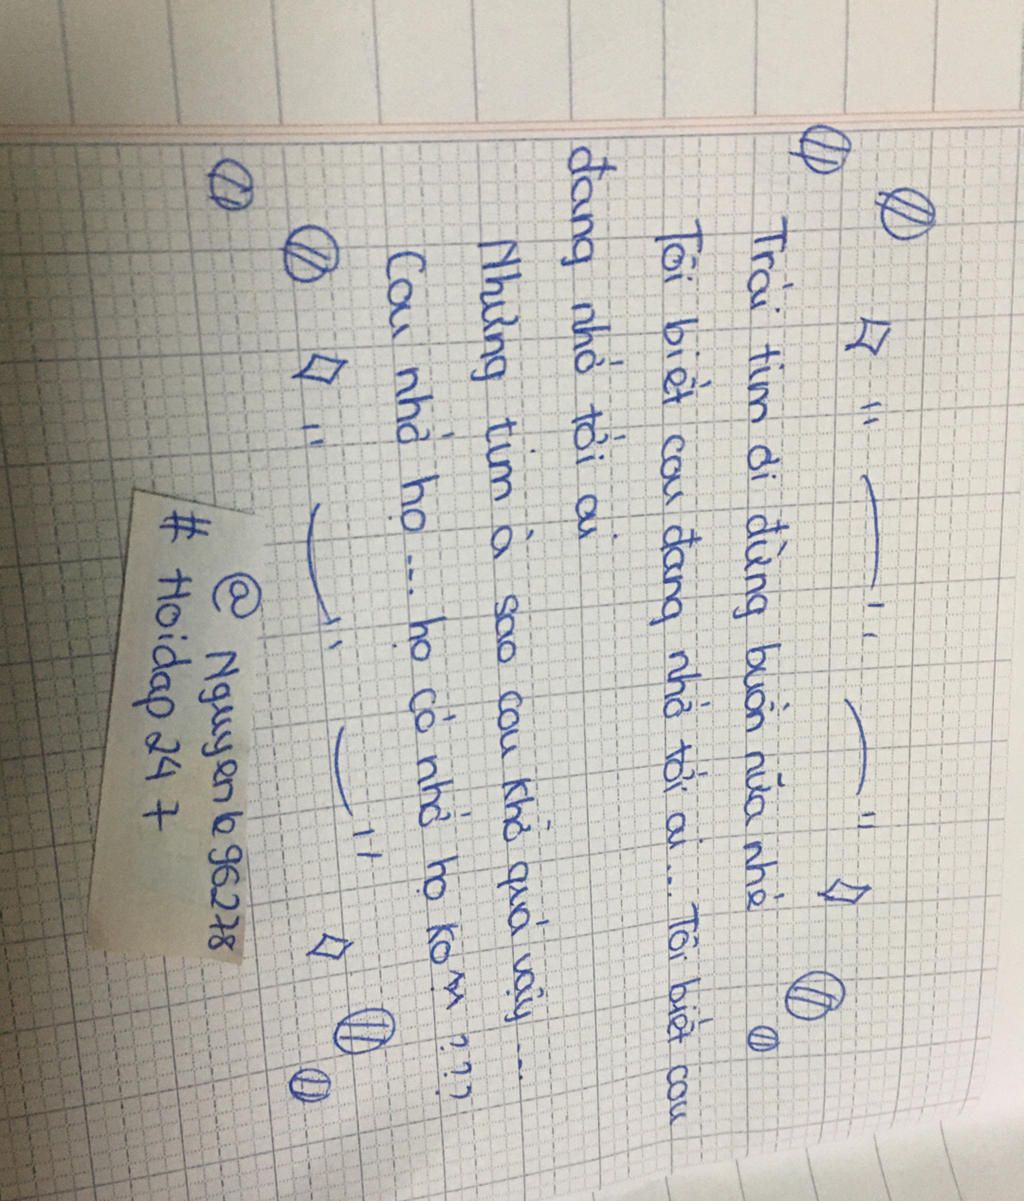 Trái tim di đừng buồn nữa nhé
Tôi biết cau đang nhớ tới ai... Tôi biết cau
đang nhớ tới ai
Nhưng tim à sao cau khờ quá vậy...
Cau nhớ họ... họ có nhớ họ ko ???
@ Nguyenle96278
# Hoidap 24 7